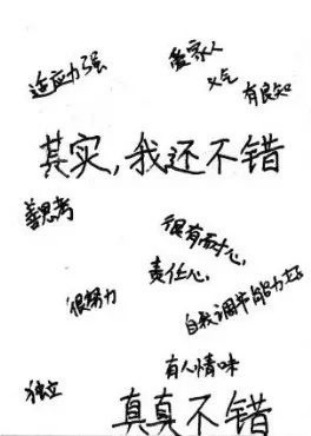 适应力强
爱家人
义气
有良知
其实,我还不错
善思考
很有耐心
责任心
很努力
自我调节能力好
有人情味
独立
真真不错